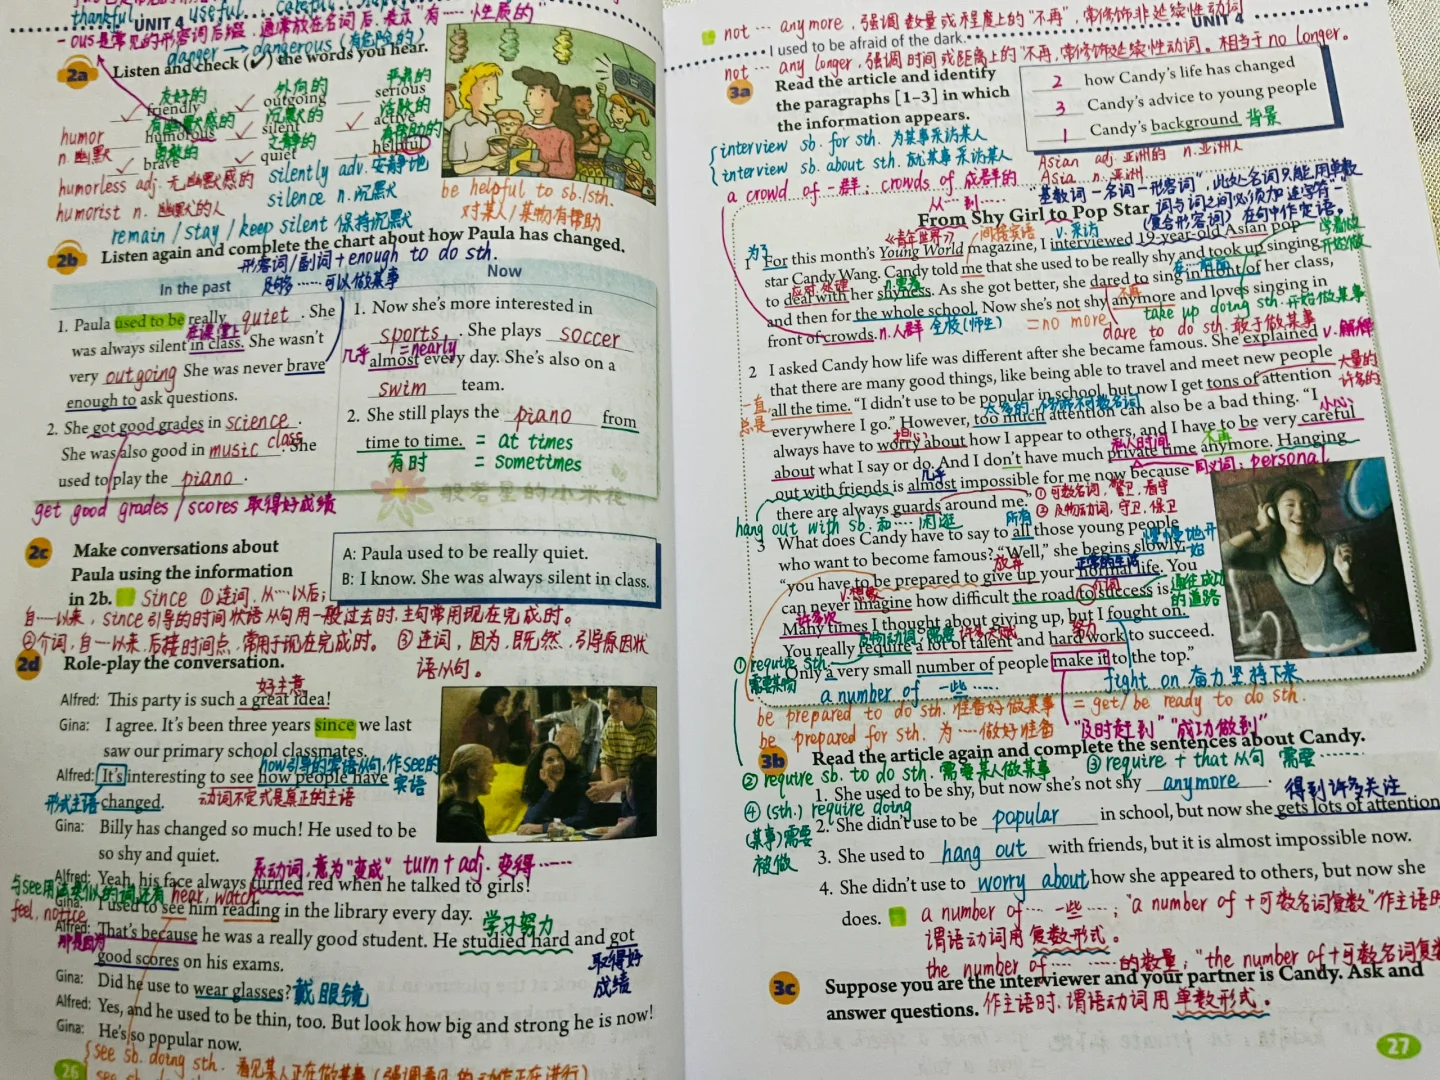 thankful useful careful
UNIT 4
-ous是常见的形容词后缀，通常放在名词后，表示"有……性质的"
danger → dangerous (有危险的)
2a Listen and check (✓) the words you hear.
友好的 外向的 严肃的
✓ friendly ✓ outgoing ___ serious
有幽默感的 沉默的 活跃的
✓ humorous ✓ silent ✓ active
勇敢的 文静的 有帮助的
✓ brave ✓ quiet ___ helpful
humor
n. 幽默
humorless adj. 无幽默感的
humorist n. 幽默的人
silently adv. 安静地
silence n. 沉默
remain / stay / keep silent 保持沉默
be helpful to sb./sth.
对某人/某物有帮助
2b Listen again and complete the chart about how Paula has changed.
形容词/副词+enough to do sth.
足够……可以做某事
In the past
1. Paula used to be really quiet. She
在课堂上
was always silent in class. She wasn't
very outgoing She was never brave
enough to ask questions.
2. She got good grades in science.
She was also good in music class. She
used to play the piano.
get good grades / scores 取得好成绩
Now
1. Now she's more interested in
sports. She plays soccer
几乎 = nearly
almost every day. She's also on a
swim team.
2. She still plays the piano from
time to time. = at times
有时 = sometimes
2c Make conversations about
Paula using the information
in 2b.
A: Paula used to be really quiet.
B: I know. She was always silent in class.
Since ①连词，从……以后；
自……以来，since引导的时间状语从句用一般过去时，主句常用现在完成时。
②介词，自…以来，后接时间点，常用于现在完成时。 ③连词，因为，既然，引导原因状
语从句。
2d Role-play the conversation.
好主意
Alfred: This party is such a great idea!
Gina: I agree. It's been three years since we last
saw our primary school classmates.
how引导的宾语从句，作see的
宾语
Alfred: It's interesting to see how people have
形式主语 changed. 动词不定式是真正的主语
Gina: Billy has changed so much! He used to be
so shy and quiet.
系动词，意为"变成" turn + adj. 变得……
Alfred: Yeah, his face always turned red when he talked to girls!
与see用法类似的词还有 hear, watch
feel, notice
Gina: I used to see him reading in the library every day. 学习努力
Alfred: That's because he was a really good student. He studied hard and got
那是因为
good scores on his exams. 取得好
成绩
Gina: Did he use to wear glasses? 戴眼镜
Alfred: Yes, and he used to be thin, too. But look how big and strong he is now!
Gina: He's so popular now.
see sb. doing sth. 看见某人正在做某事(强调看见的动作正在进行)
26
not … anymore，强调数量或程度上的"不再"，常修饰非延续性动词
UNIT 4
I used to be afraid of the dark.
not … any longer，强调时间或距离上的"不再"，常修饰延续性动词。相当于 no longer.
3a Read the article and identify
the paragraphs [1–3] in which
the information appears.
2 how Candy's life has changed
3 Candy's advice to young people
1 Candy's background 背景
interview sb. for sth. 为某事采访某人
interview sb. about sth. 就某事采访某人
Asian adj. 亚洲的 n. 亚洲人
Asia n. 亚洲
a crowd of 一群；crowds of 成群的
"基数词-名词-形容词"，此处名词只能用单数
词与词之间必须加连字符"-"
(复合形容词) 在句中作定语。
从…到…
From Shy Girl to Pop Star
为了 《青年世界》 间接宾语 v. 采访 学着做
开始做
1 For this month's Young World magazine, I interviewed 19-year-old Asian pop
star Candy Wang. Candy told me that she used to be really shy and took up singing
应对，处理 n. 害羞 在…前面
to deal with her shyness. As she got better, she dared to sing in front of her class,
不再
and then for the whole school. Now she's not shy anymore and loves singing in
front of crowds. n. 人群 全校(师生) = no more take up doing sth. 开始做某事
dare to do sth. 敢于做某事
2 I asked Candy how life was different after she became famous. She explained v. 解释
that there are many good things, like being able to travel and meet new people
一直
总是
all the time. "I didn't use to be popular in school, but now I get tons of attention 大量的
许多的
太多的，修饰不可数名词
everywhere I go." However, too much attention can also be a bad thing. "I
担心 小心
always have to worry about how I appear to others, and I have to be very careful
私人时间 不再
about what I say or do. And I don't have much private time anymore. Hanging
几乎 同义词：personal
out with friends is almost impossible for me now because
there are always guards around me." ①可数名词，警卫，看守
②及物动词，守卫，保卫
hang out with sb. 和……闲逛
所有
3 What does Candy have to say to all those young people
慢慢地开
始
who want to become famous? "Well," she begins slowly,
放弃 正常的生活
"you have to be prepared to give up your normal life. You
v. 想象 介词 通往成功
的道路
can never imagine how difficult the road to success is.
许多次
Many times I thought about giving up, but I fought on.
及物动词，需要 许多天赋 努力
You really require a lot of talent and hard work to succeed.
Only a very small number of people make it to the top."
①require sth.
需要某物
a number of 一些…… fight on 奋力坚持下来
be prepared to do sth. 准备好做某事 = get/be ready to do sth.
be prepared for sth. 为…做好准备 "及时赶到" "成功做到"
3b Read the article again and complete the sentences about Candy.
②require sb. to do sth. 需要某人做某事 ③require + that 从句 需要……
④(sth.) require doing
(某事)需要
被做
1. She used to be shy, but now she's not shy anymore. 得到许多关注
2. She didn't use to be popular in school, but now she gets lots of attention
3. She used to hang out with friends, but it is almost impossible now.
4. She didn't use to worry about how she appeared to others, but now she
does. a number of … 一些…；"a number of +可数名词复数"作主语时
谓语动词用复数形式。
the number of … ……的数量；"the number of+可数名词复数
3c Suppose you are the interviewer and your partner is Candy. Ask and
answer questions. 作主语时，谓语动词用单数形式。
27